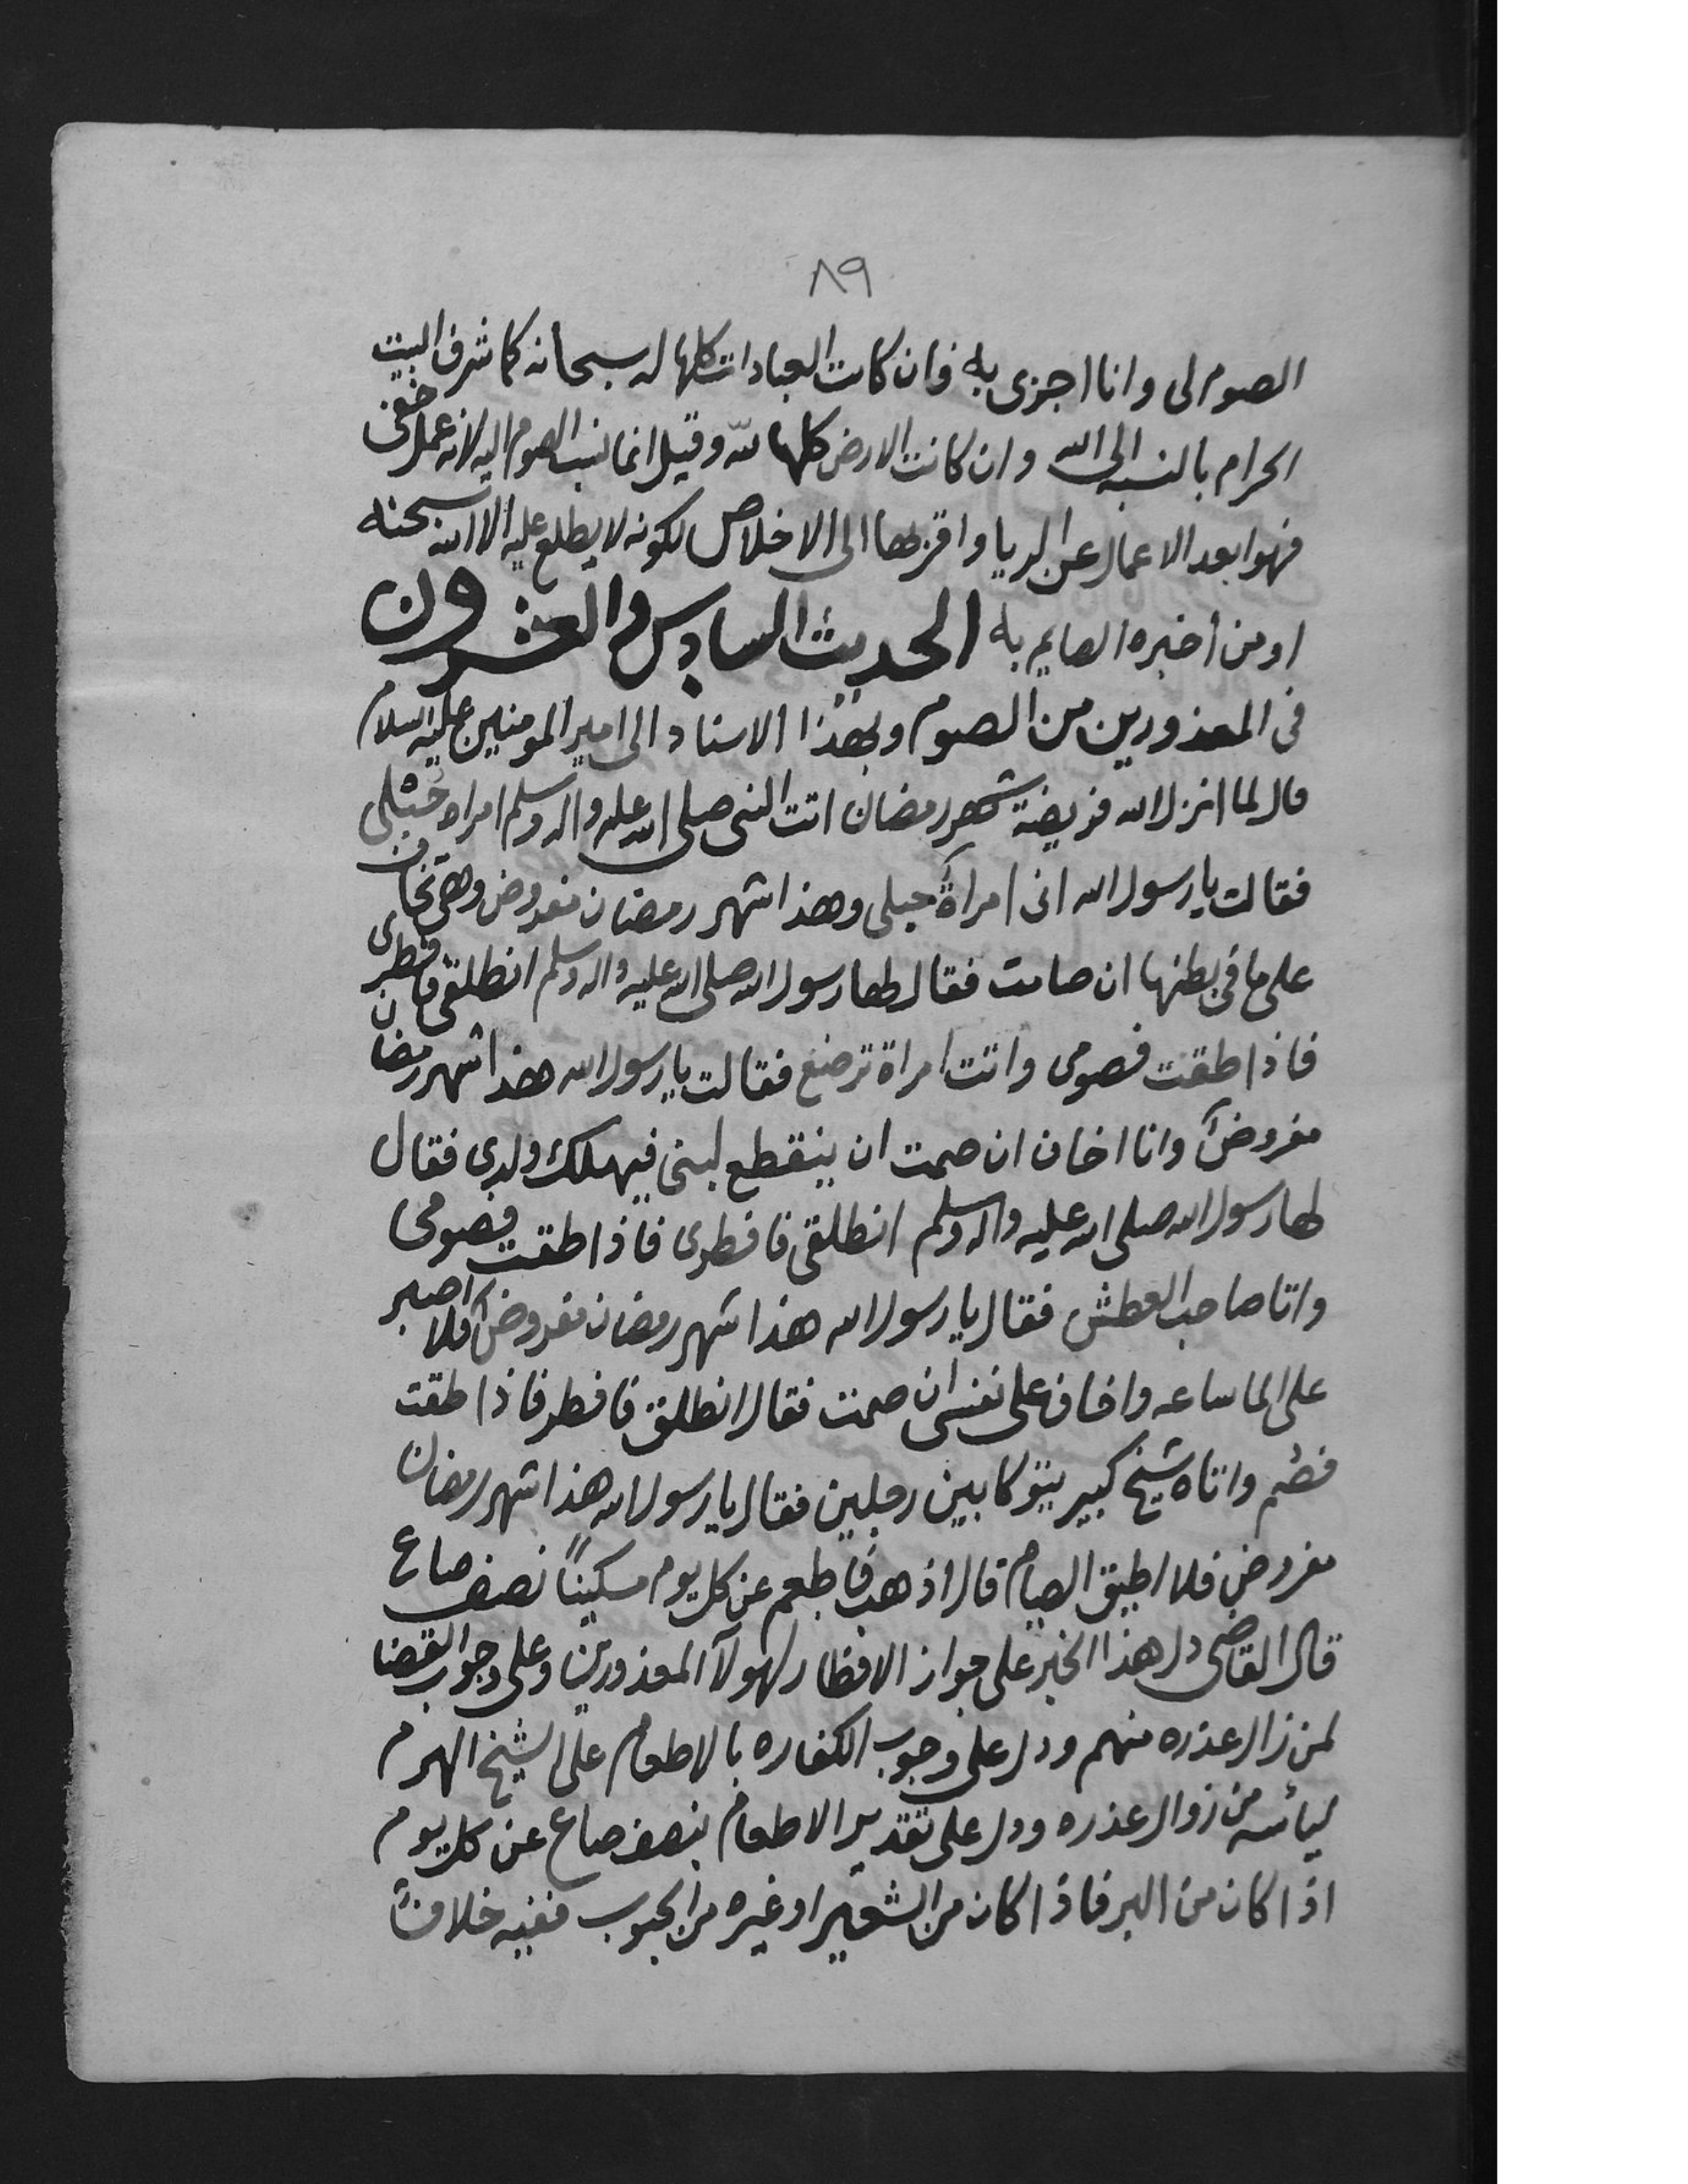 ٨٩
الصوم لى وانا اجزى به وان كانت العبادات كلها له سبحانه كما شرف البيت
الحرام بالنسبه الى الله وان كانت الارض كلها لله وقيل انما نسب الصوم اليه لانه عمل خفى
فهو ابعد الاعمال عن الريا واقربها الى الاخلاص لكونه لا يطلع عليه الا الله سبحنه
او من اخبره الصايم به الحديث السادس والعشرون
فى المعذورين من الصوم وبهذا الاسناد الى امير المومنين عليه السلام
قال لما انزل الله فريضة شهر رمضان اتت النبى صلى الله عليه واله وسلم امراه حبلى
فقالت يا رسول الله انى امراة حبلى وهذا شهر رمضان مفروض وهى تخاف
على ما فى بطنها ان صامت فقال لها رسول الله صلى الله عليه واله وسلم انطلقى فافطرى
فاذا اطقت فصومى واتت امراة ترضع فقالت يا رسول الله هذا شهر رمضان
مفروض وانا اخاف ان صمت ان ينقطع لبنى فيهلك ولدى فقال
لها رسول الله صلى الله عليه واله وسلم انطلقى فافطرى فاذا اطقت فصومى
واتا صاحب العطش فقال يا رسول الله هذا شهر رمضان مفروض ولا اصبر
على الما ساعه واخاف على نفسى ان صمت فقال انطلق فافطر فاذا اطقت
فصم واتاه شيخ كبير يتوكا بين رجلين فقال يا رسول الله هذا شهر رمضان
مفروض فلا اطيق الصيام قال اذهب فاطعم عن كل يوم مسكيناً نصف صاع
قال القاضى دل هذا الخبر على جواز الافطار لهولآ المعذورين وعلى وجوب القضا
لمن زال عذره منهم ودل على وجوب الكفاره بالاطعام على الشيخ الهرم
ليأسه من زوال عذره ودل على تقدير الاطعام بنصف صاع عن كل يوم
اذا كان من البر فاذا كان من الشعير او غيره من الحبوب ففيه خلاف